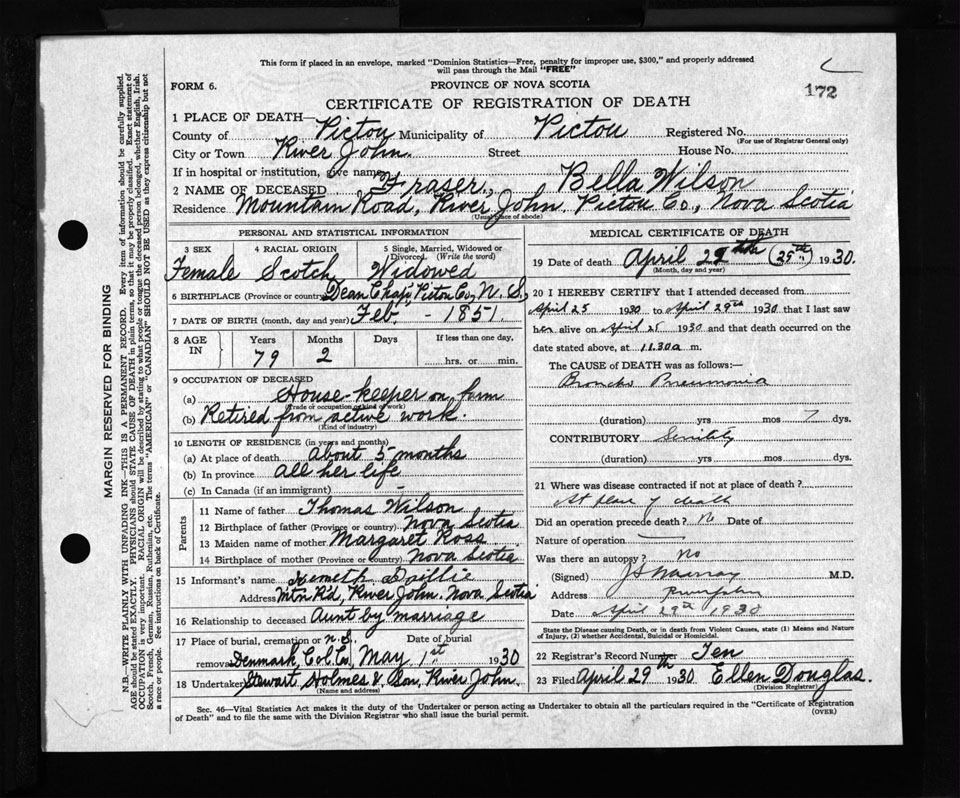 This form if placed in an envelope, marked "Dominion Statistics—Free, penalty for improper use, $300," and properly addressed
will pass through the Mail "FREE"
FORM 6.
PROVINCE OF NOVA SCOTIA
172
CERTIFICATE OF REGISTRATION OF DEATH
1 PLACE OF DEATH—
County of Pictou Municipality of Pictou Registered No.
(For use of Registrar General only)
City or Town River John. Street House No.
If in hospital or institution, give name
2 NAME OF DECEASED Fraser, Bella Wilson
Residence Mountain Road, River John Pictou Co., Nova Scotia
(Usual place of abode)
PERSONAL AND STATISTICAL INFORMATION
3 SEX 4 RACIAL ORIGIN 5 Single, Married, Widowed or
Divorced (Write the word)
Female Scotch Widowed
6 BIRTHPLACE (Province or country) Dean Chap, Pictou Co, N. S.
7 DATE OF BIRTH (month, day and year) Feb. - 1851.
8 AGE IN Years Months Days If less than one day,
79 2 hrs. or min.
9 OCCUPATION OF DECEASED
(a) House-keeper on farm
(Trade or occupation or kind of work)
(b) Retired from active work.
(Kind of industry)
10 LENGTH OF RESIDENCE (in years and months)
(a) At place of death About 5 months
(b) In province All her life
(c) In Canada (if an immigrant) -
Parents
11 Name of father Thomas Wilson
12 Birthplace of father (Province or country) Nova Scotia
13 Maiden name of mother Margaret Ross
14 Birthplace of mother (Province or Country) Nova Scotia
15 Informant's name Kenneth Baillie
Address Mtn Rd, River John. Nova Scotia
16 Relationship to deceased Aunt by marriage
17 Place of burial, cremation or N.S. Date of burial
removal Denmark Col. Co, May 1st 1930
18 Undertaker Stewart Holmes & Son, River John.
(Name and address)
MEDICAL CERTIFICATE OF DEATH
19 Date of death April 29th (25th) 1930.
(Month, day and year)
20 I HEREBY CERTIFY that I attended deceased from
April 25 1930 to April 29th 1930 that I last saw
her alive on April 25 1930 and that death occurred on the
date stated above, at 11.30 a m.
The CAUSE of DEATH was as follows:—
Broncho Pneumonia
(duration) yrs mos 7 dys.
CONTRIBUTORY Senility
(duration) yrs mos dys.
21 Where was disease contracted if not at place of death?
At place of death
Did an operation precede death? No Date of
Nature of operation
Was there an autopsy? No
(Signed) M.D.
Address
Date April 29th 1930
State the Disease causing Death, or in death from Violent Causes, state (1) Means and Nature
of Injury, (2) whether Accidental, Suicidal or Homicidal.
22 Registrar's Record Number Ten
23 Filed April 29th 1930 Ellen Douglas.
(Division Registrar)
Sec. 46—Vital Statistics Act makes it the duty of the Undertaker or person acting as Undertaker to obtain all the particulars required in the "Certificate of Registration
of Death" and to file the same with the Division Registrar who shall issue the burial permit.
(OVER)
MARGIN RESERVED FOR BINDING
N.B.—WRITE PLAINLY WITH UNFADING INK—THIS IS A PERMANENT RECORD. Every item of information should be carefully supplied.
AGE should be stated EXACTLY. PHYSICIANS should STATE CAUSE OF DEATH in plain terms, so that it may be properly classified. Exact statement of
OCCUPATION is very important. RACIAL ORIGIN will be described by stating to what people or tongue the deceased person belonged, whether English, Irish,
Scotch, French, German, Russian, Ruthenian, etc. The terms "AMERICAN" or "CANADIAN" SHOULD NOT BE USED as they express citizenship but not
a race or people. See instructions on back of Certificate.